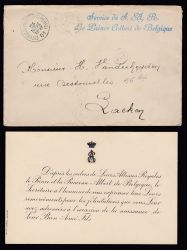 Service de S. A. R.
Le Prince Albert de Belgique
Monsieur H. Vanderleyden
rue des
Laeken
D'après les ordres de Leurs Altesses Royales
le Prince et la Princesse Albert de Belgique, le
Secrétaire a l'honneur de vous exprimer tous Leurs
remerciements pour les félicitations que vous Leur
avez adressées à l'occasion de la naissance de
Leur Bien-Aimé Fils.